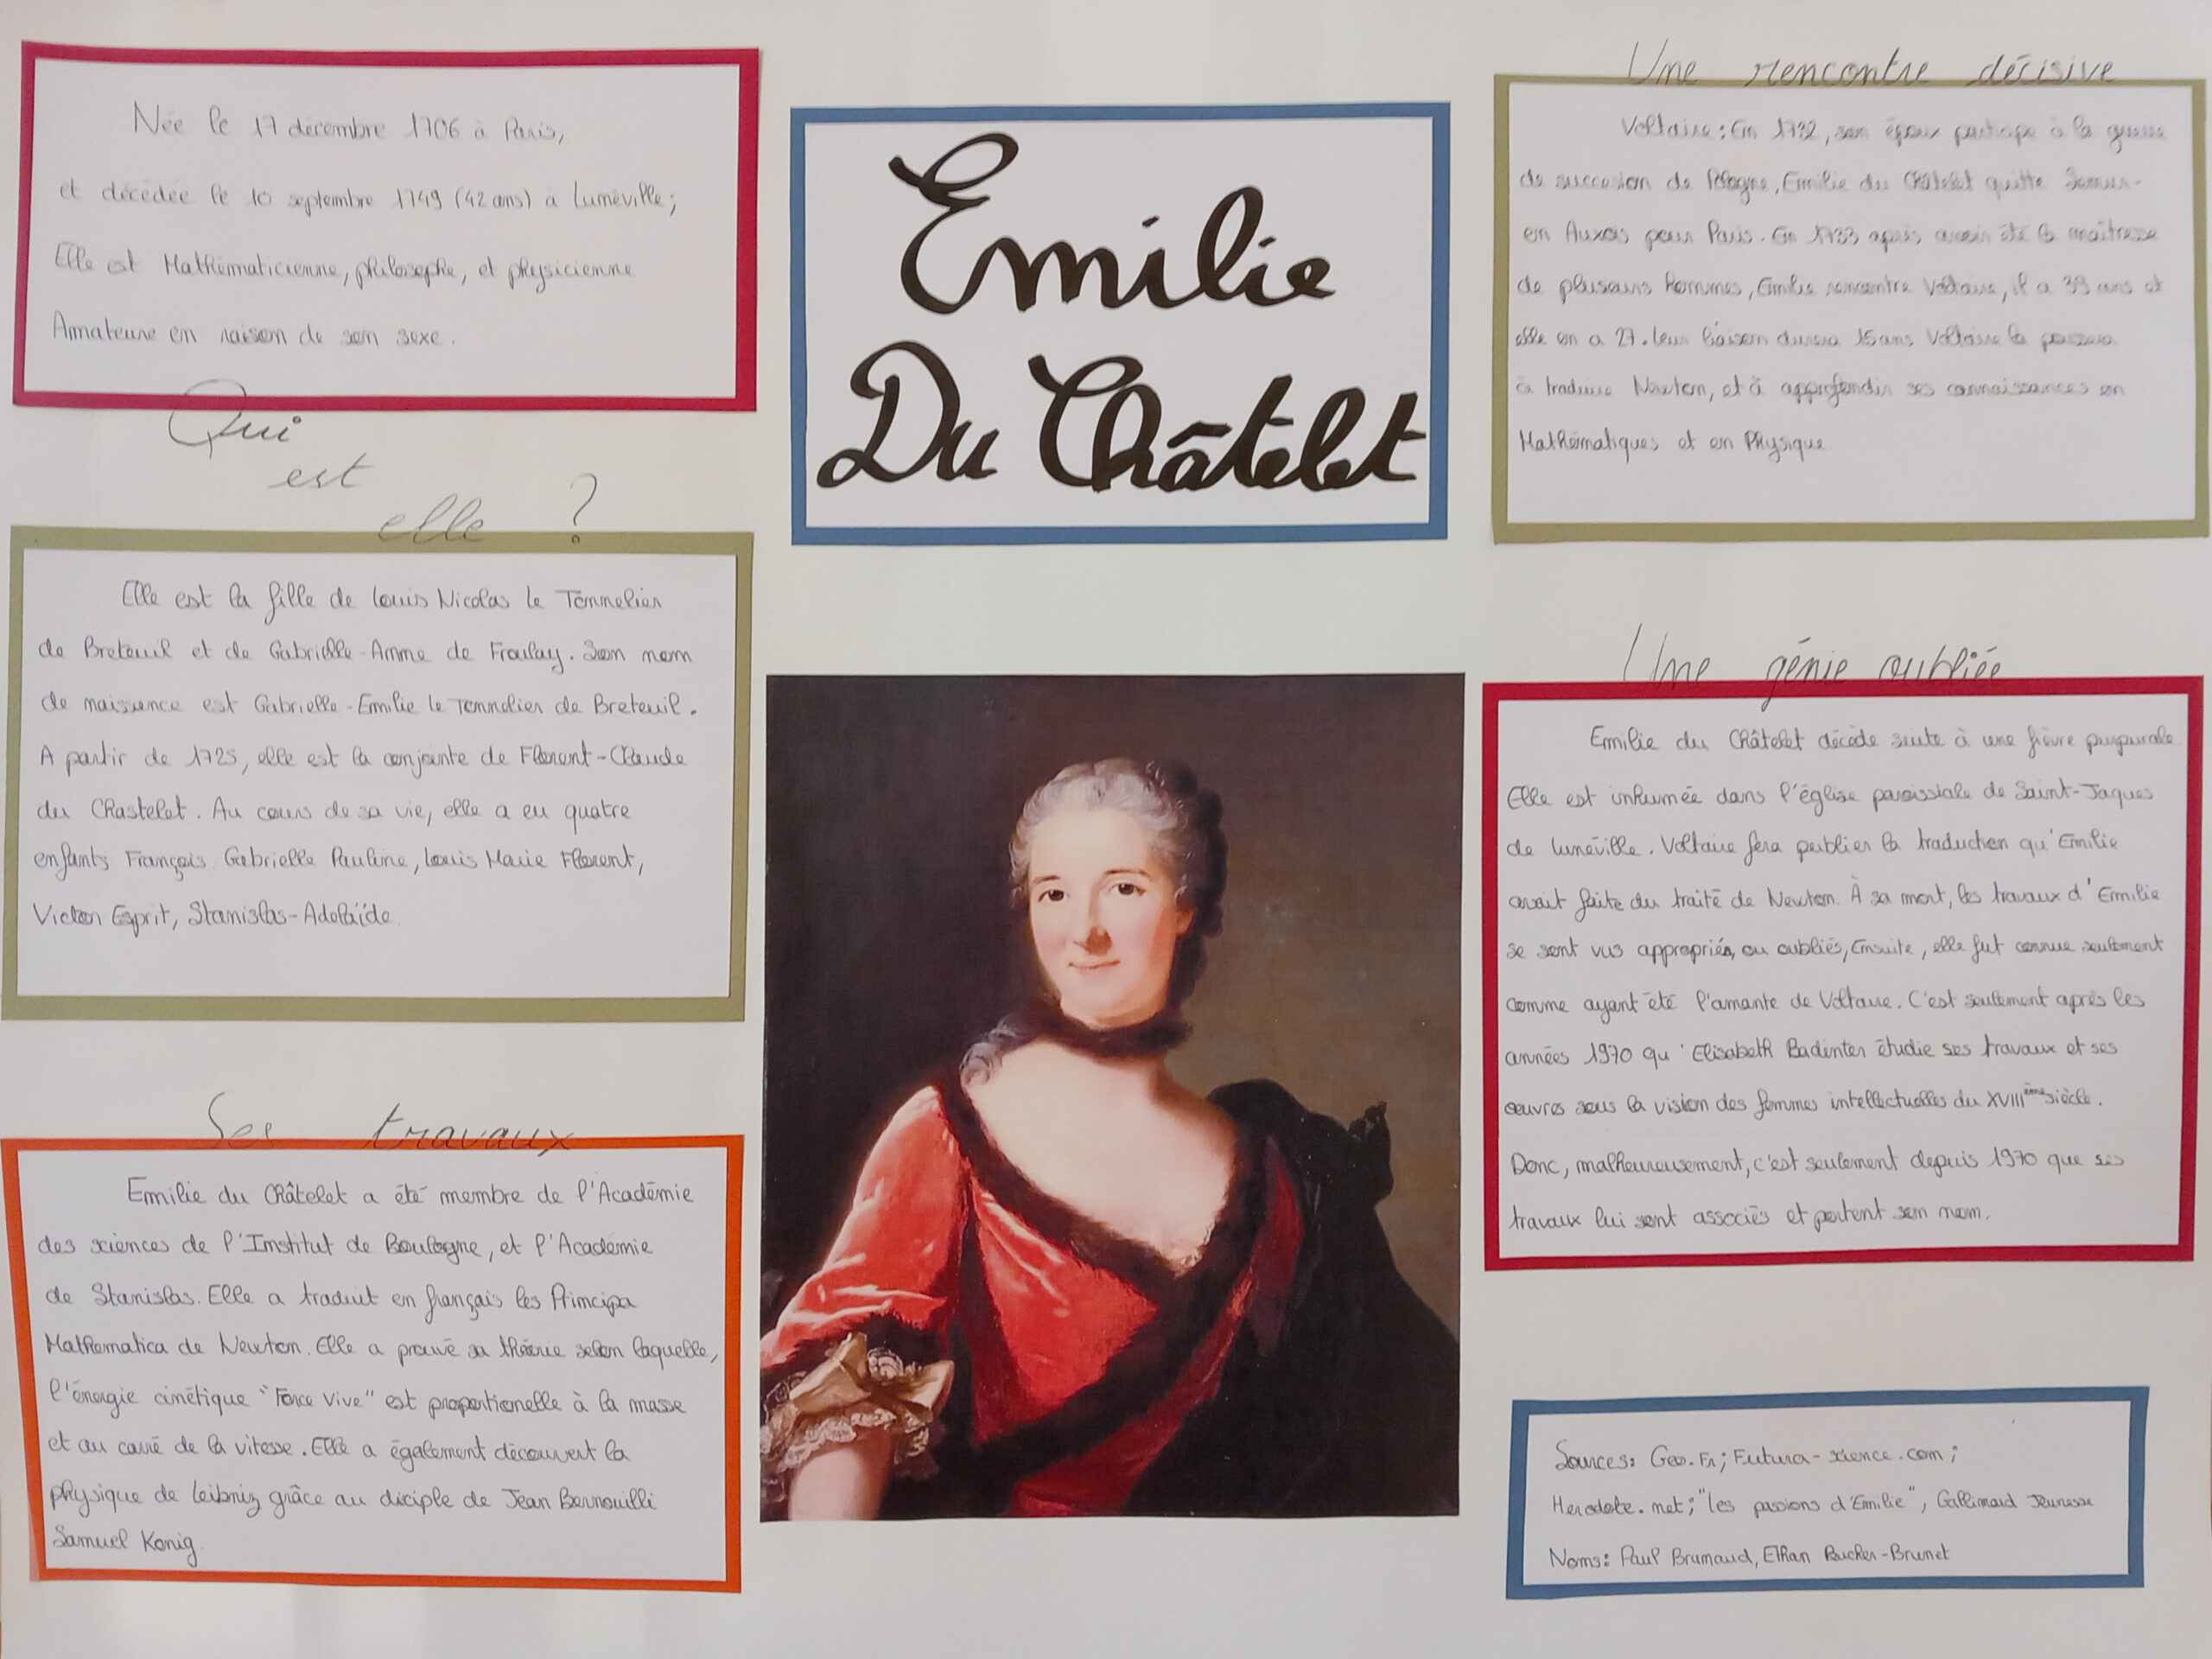 Née le 17 décembre 1706 à Paris,
et décédée le 10 septembre 1749 (42 ans) a Lunéville;
Elle est Mathématicienne, philosophe, et physicienne
Amateure en raison de son sexe.
Qui
est
elle ?
Elle est la fille de Louis Nicolas le Tonnelier
de Breteuil et de Gabrielle-Anne de Froulay. Son nom
de naissence est Gabrielle-Emilie le Tonnelier de Breteuil.
A partir de 1725, elle est la conjointe de Florent-Claude
du Chastelet. Au cours de sa vie, elle a eu quatre
enfants François Gabrielle Pauline, Louis Marie Florent,
Victor Esprit, Stanislas-Adélaïde.
Ses travaux
Emilie du Châtelet a été membre de l'Académie
des sciences de l'Institut de Boulogne, et l'Académie
de Stanislas. Elle a traduit en français les Principa
Mathematica de Newton. Elle a prouvé sa théorie selon laquelle,
l'énergie cinétique "Force Vive" est proportionelle à la masse
et au carré de la vitesse. Elle a également découvert la
physique de Leibniz grâce au diciple de Jean Bernouilli
Samuel Konig.
Emilie
Du Châtelet
Une rencontre décisive
Voltaire: En 1732, son époux participe à la guerre
de succession de Pologne, Emilie du Châtelet quitte Semur-
en Auxois pour Paris. En 1733 après avoir été la maîtresse
de plusieurs hommes, Emilie rencontre Voltaire, il a 39 ans et
elle en a 27. Leur liaison durera 15 ans Voltaire la poussera
à traduire Newton, et à approfondir ses connaissances en
Mathématiques et en Physique
Une génie oubliée
Emilie du Châtelet décède suite à une fièvre purpurale
Elle est inhumée dans l'église paroissiale de Saint-Jaques
de Lunéville. Voltaire fera publier la traduction qu'Emilie
avait faite du traité de Newton. À sa mort, les travaux d'Emilie
se sont vus appropriés, ou oubliés, Ensuite, elle fut connue seulement
comme ayant été l'amante de Voltaire. C'est seulement après les
années 1970 qu'Elisabeth Badinter étudie ses travaux et ses
œuvres sous la vision des femmes intellectuelles du XVIIIème siècle.
Donc, malheureusement, c'est seulement depuis 1970 que ses
travaux lui sont associés et portent son nom.
Sources: Geo.Fr; Futura-science.com;
Herodote.net; "les passions d'Emilie", Gallimard Jeunesse
Noms: Paul Brumaud, Ethan Bucher-Brunet